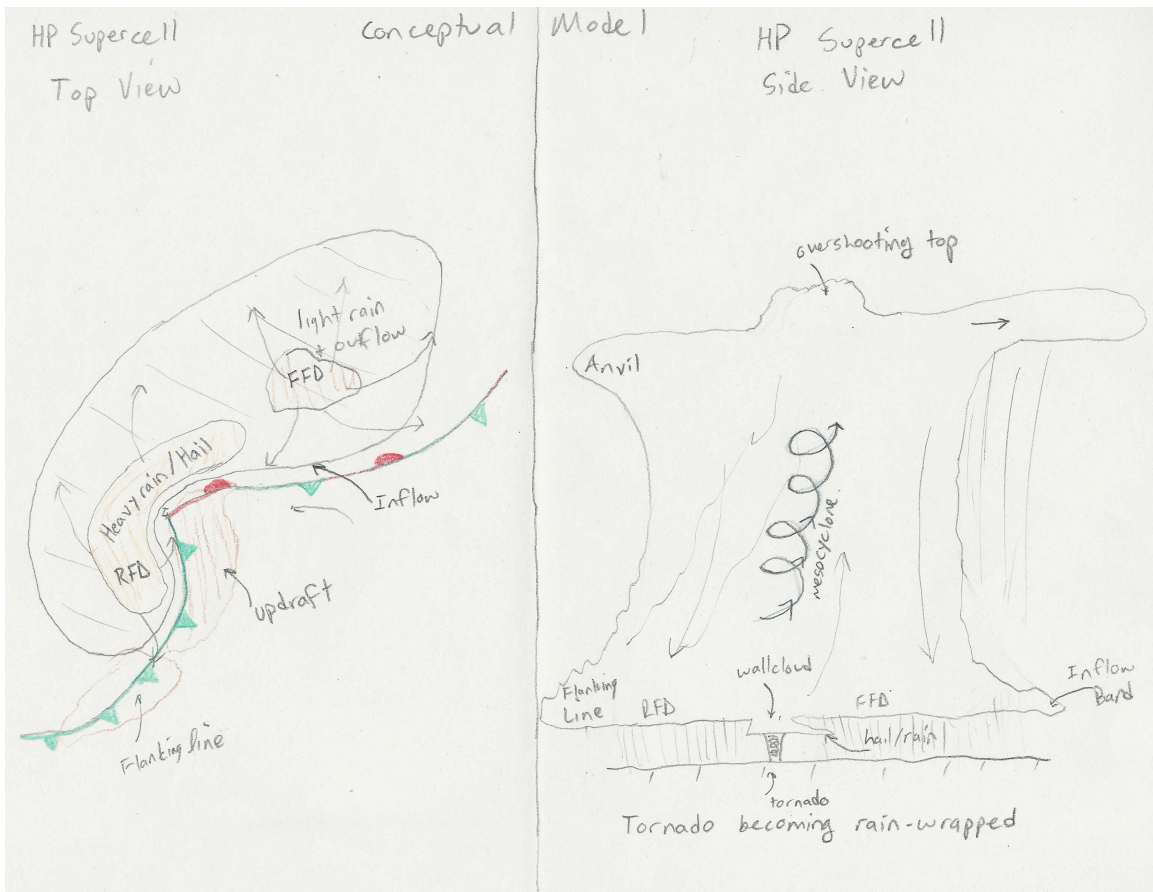 HP Supercell
Top View
Conceptual Model
HP Supercell
Side View
light rain
+ outflow
FFD
Heavy rain/Hail
RFD
Inflow
updraft
Flanking line
overshooting top
Anvil
mesocyclone
wallcloud
Flanking
Line
RFD
FFD
Inflow
Band
hail/rain
tornado
Tornado becoming rain-wrapped